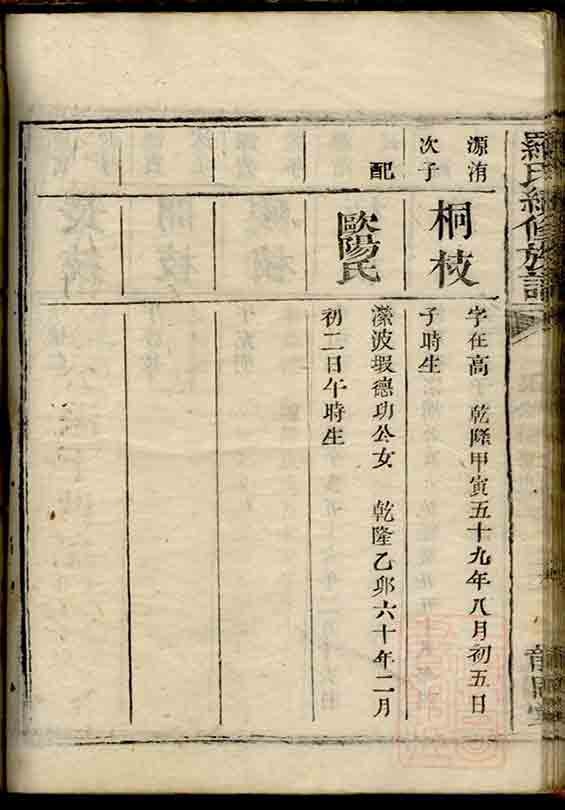 羅氏續修族譜
源洧
次子
桐枝
字在高 乾隆甲寅五十九年八月初五日
子時生
配
歐陽氏
濚波塅德功公女 乾隆乙卯六十年二月
初二日午時生